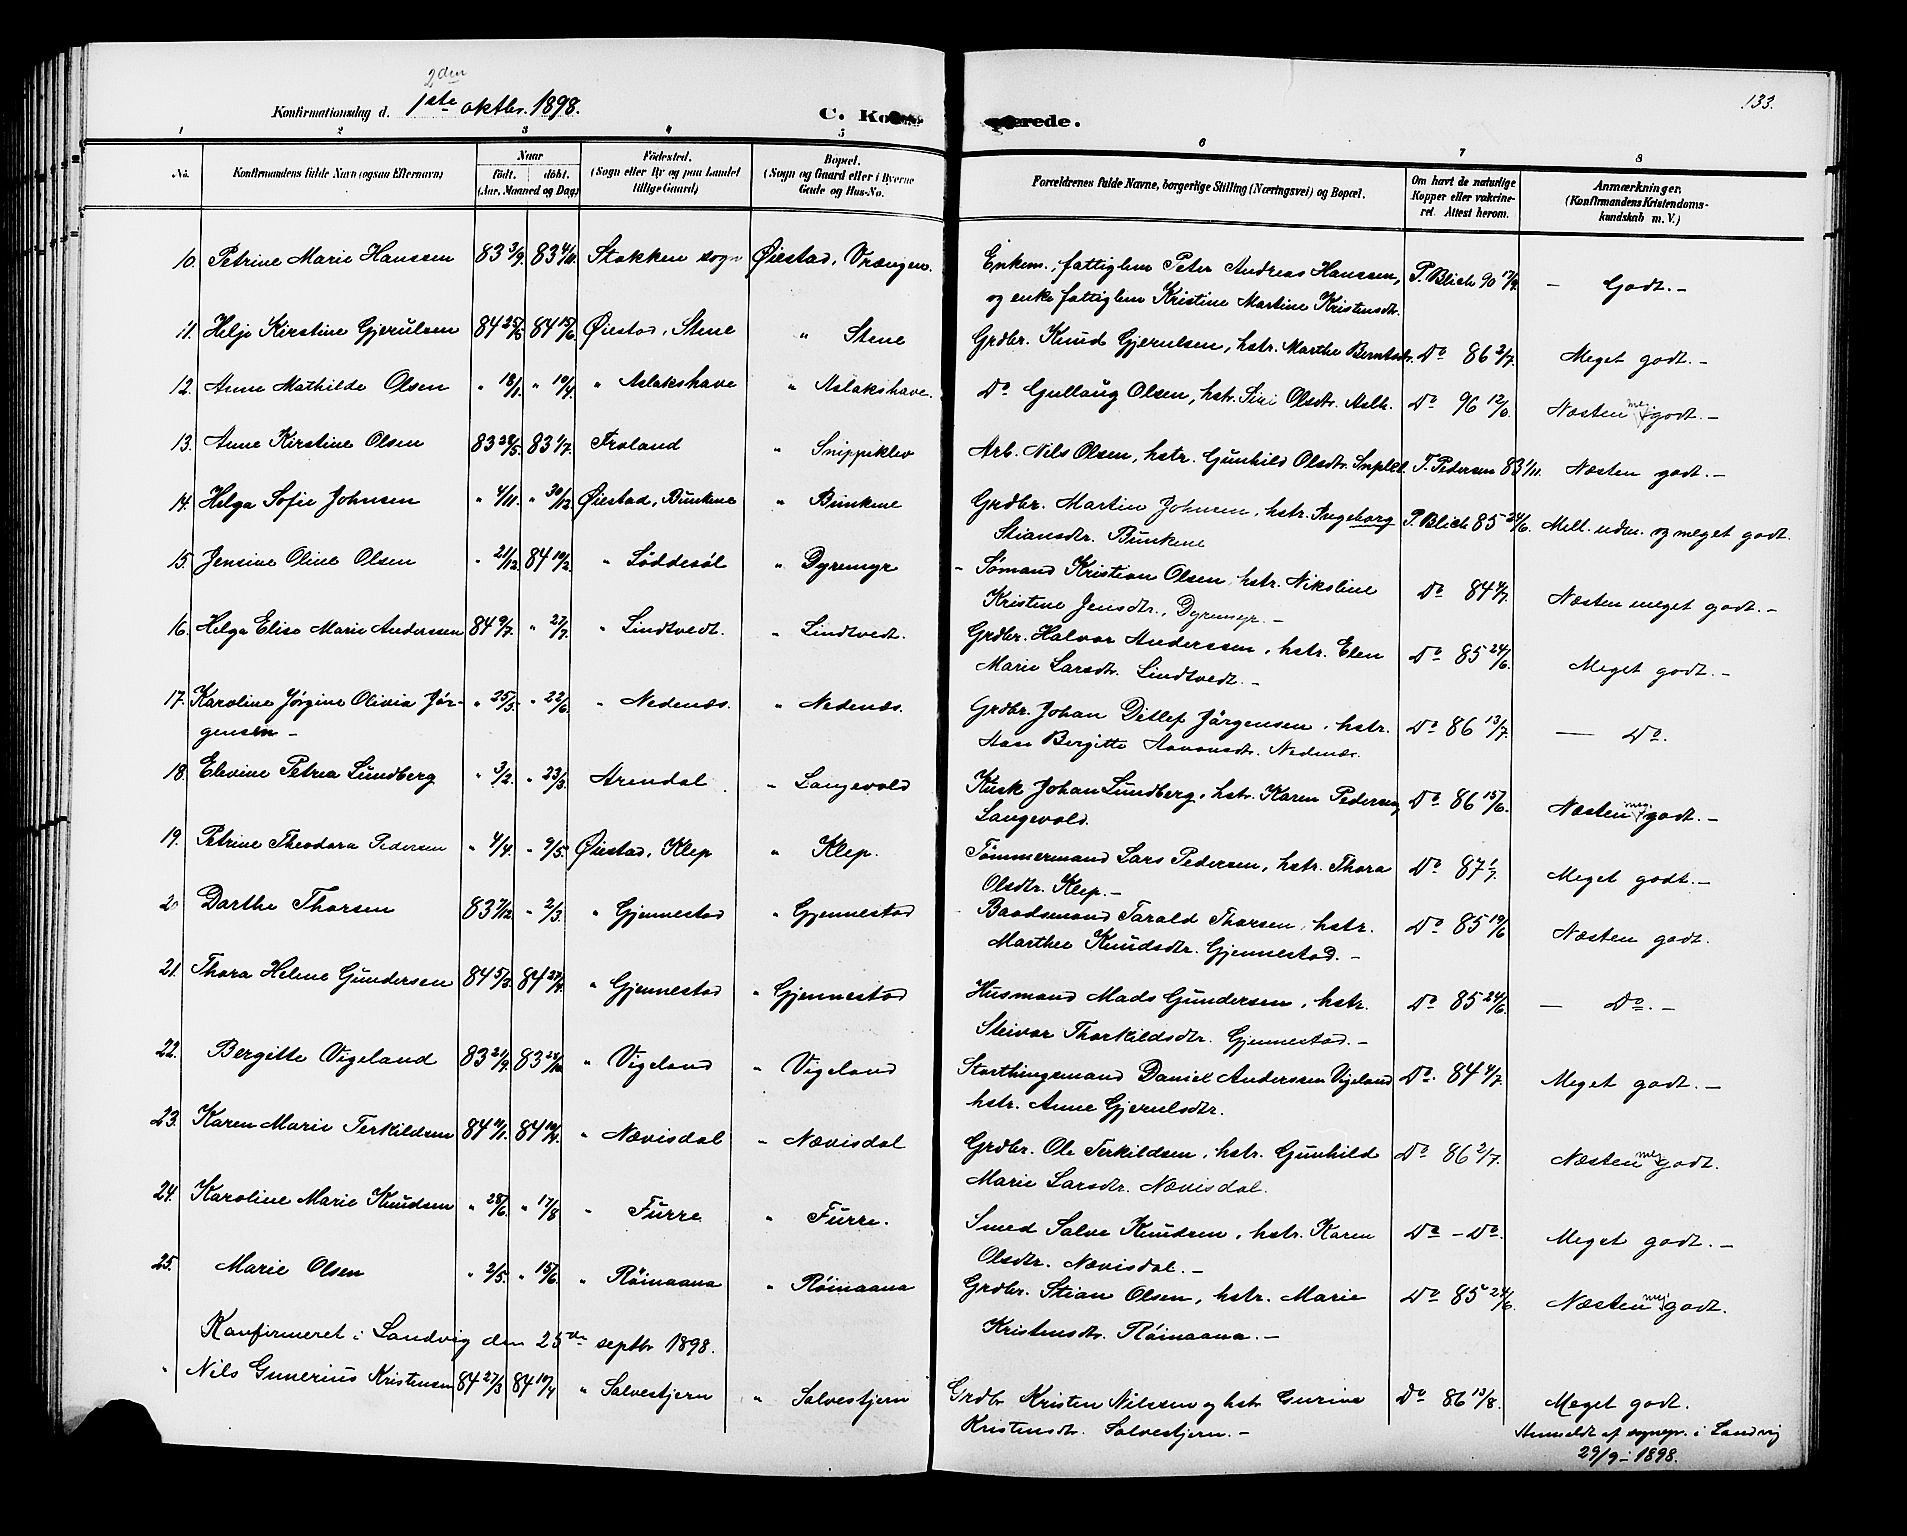 2den
Konfirmationsdag d. 1ste oktbr. 1898.
C. Ko
rede.
133.
1 2 3 4 5 6 7 8
No. Konfirmandens fulde Navn (ogsaa Efternavn) Naar födt. döbt. (Aar, Maaned og Dag) Födested. (Sogn eller By og paa Landet tillige Gaard) Bopæl. (Sogn og Gaard eller i Byerne Gade og Hus-No. Forældrenes fulde Navne, borgerlige Stilling (Næringsvei) og Bopæl. Om havt de naturlige Kopper eller vakcineret. Attest herom. Anmærkninger. (Konfirmandens Kristendomskundskab m. V.)
10. Petrine Marie Hanssen 83 3/9. 83 4/11. Stokken sogn Øiestad, Vrængen. Enkem. fattiglem Peter Andreas Hanssen, P. Blich 90 17/9 — Godt. —
og enke fattiglem Kristine Martine Kristensdtr.
11. Helje Kirstine Gjerulsen 84 25/5 84 15/6 Øiestad, Stene " Stene Grdbr. Knud Gjerulsen, hstr. Marthe Berntsdtr. Do 86 2/7. Meget godt. —
12. Anne Mathilde Olsen " 18/1. " 19/4 " Aslakshave " Aslakshave. Do Gullaug Olsen, hstr. Siri Olsdtr. Aslh. Do 96 12/6. Næsten meg. godt. —
13. Anne Kirstine Olsen 83 28/5. 83 1/7. Froland " Snippiklev Arb. Nils Olsen, hstr. Gunhild Olsdtr. Snpkl. T. Pedersen 83 1/11. Næsten godt. —
14. Helga Sofie Johnsen " 4/11. " 30/12 Øiestad, Bunkene " Bunkene Grdbr. Martin Johnsen, hstr. Ingeborg P. Blich 85 24/6. Mell. udm. og meget godt.
Stiansdtr. Bunkene
15. Jensine Oline Olsen " 21/12. 84 10/2. " Løddesöl " Dyremyr Sømand Kristian Olsen, hstr. Nikoline Do 84 4/7. Næsten meget godt. —
Kristine Jensdtr., Dyremyr. —
16. Helga Elise Marie Anderssen 84 9/7. " 27/7. " Lindtvedt. " Lindtvedt. Grdbr. Halvor Anderssen, hstr. Elen Do 85 24/6. Meget godt. —
Marie Larsdtr. Lindtvedt. —
17. Karoline Jørgine Olivia Jør- " 25/3. " 22/6. " Nedenæs. " Nedenæs. Grdbr. Johan Ditlef Jörgensen, hstr. Do 86 13/7. — Do.
gensen — Aase Bergitte Aavonsdtr. Nedenæs.
18. Elevine Petrea Lundberg " 3/2. " 23/3. Arendal " Langevold Kusk Johan Lundberg, hstr. Karen Pedersen, Do 86 15/6. Næsten meg. godt. —
Langevold.
19. Petrine Theodora Pedersen " 4/4. " 9/5. Øiestad, Klep " Klep. Tømmermand Lars Pedersen, hstr. Thora Do 87 1/7. Meget godt. —
Olsdtr. Klep. —
20 Dorthe Thorsen 83 7/12. " 2/3. " Gjennestad " Gjennestad Baadsmand Tarald Thorsen, hstr. Do 85 19/6 Næsten godt.
Marthee Knudsdtr. Gjennestad. —
21. Thora Helene Gundersen 84 5/3. 84 27/4. " Gjennestad " Gjennestad Husmand Mads Gundersen, hstr. Do 85 24/6. — Do. —
Steivor Thorkildsdtr. Gjennestad. —
22. Bergitte Vigeland 83 21/9. 83 24/10. " Vigeland " Vigeland Storthingsmand Daniel Anderssen Vigeland Do. 84 4/7. Meget godt. —
hstr. Anne Gjerulsdtr.
23. Karen Marie Terkildsen 84 11/1. 84 14/4. " Nævisdal " Nævisdal Grdbr. Ole Terkildsen, hstr. Gunhild Do 86 2/7. Næsten meg godt.
Marie Larsdtr. Nævisdal.
24. Karoline Marie Knudsen " 28/6. " 17/8 " Furre " Furre. Smed Salve Knudsen, hstr. Karen Do — Do. Meget godt. —
Olsdtr. Nævisdal. —
25. Marie Olsen " 2/5. " 15/6. " Röinaana " Röinaana Grdbr. Stian Olsen, hstr. Marie Do 85 24/6. Næsten meg godt.
Kristensdtr. Röinaana. —
Konfirmeret i Landvig den 25de septbr 1898.
" Nils Gunerius Kristensen 84 27/3 84 14/4 " Salvestjern " Salvestjern Grdbr Kristen Nilssen og hstr Gurine Do 86 13/8. Meget godt.
Kristensdtr. Salvestjern. — Anmeldt af sognepr. i Landvig
29/9 - 1898.